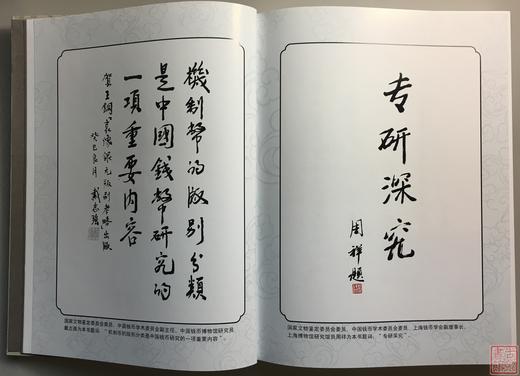 專研深究
周祥題
国家文物鉴定委员会委员、中国钱币学术委员会委员、上海钱币学会副理事长、
上海博物馆研究馆员周祥为本书题词,“专研深究”。
機制幣的版別分類
是中國錢幣研究的
一項重要內容
賀王鋼袁懷深元版别考略出版
癸巳良月 戴志强
国家文物鉴定委员会委员、中国钱币学术委员会副主任、中国钱币博物馆研究员
戴志强为本书题词,“机制币的版别分类是中国钱币研究的一项重要内容”。